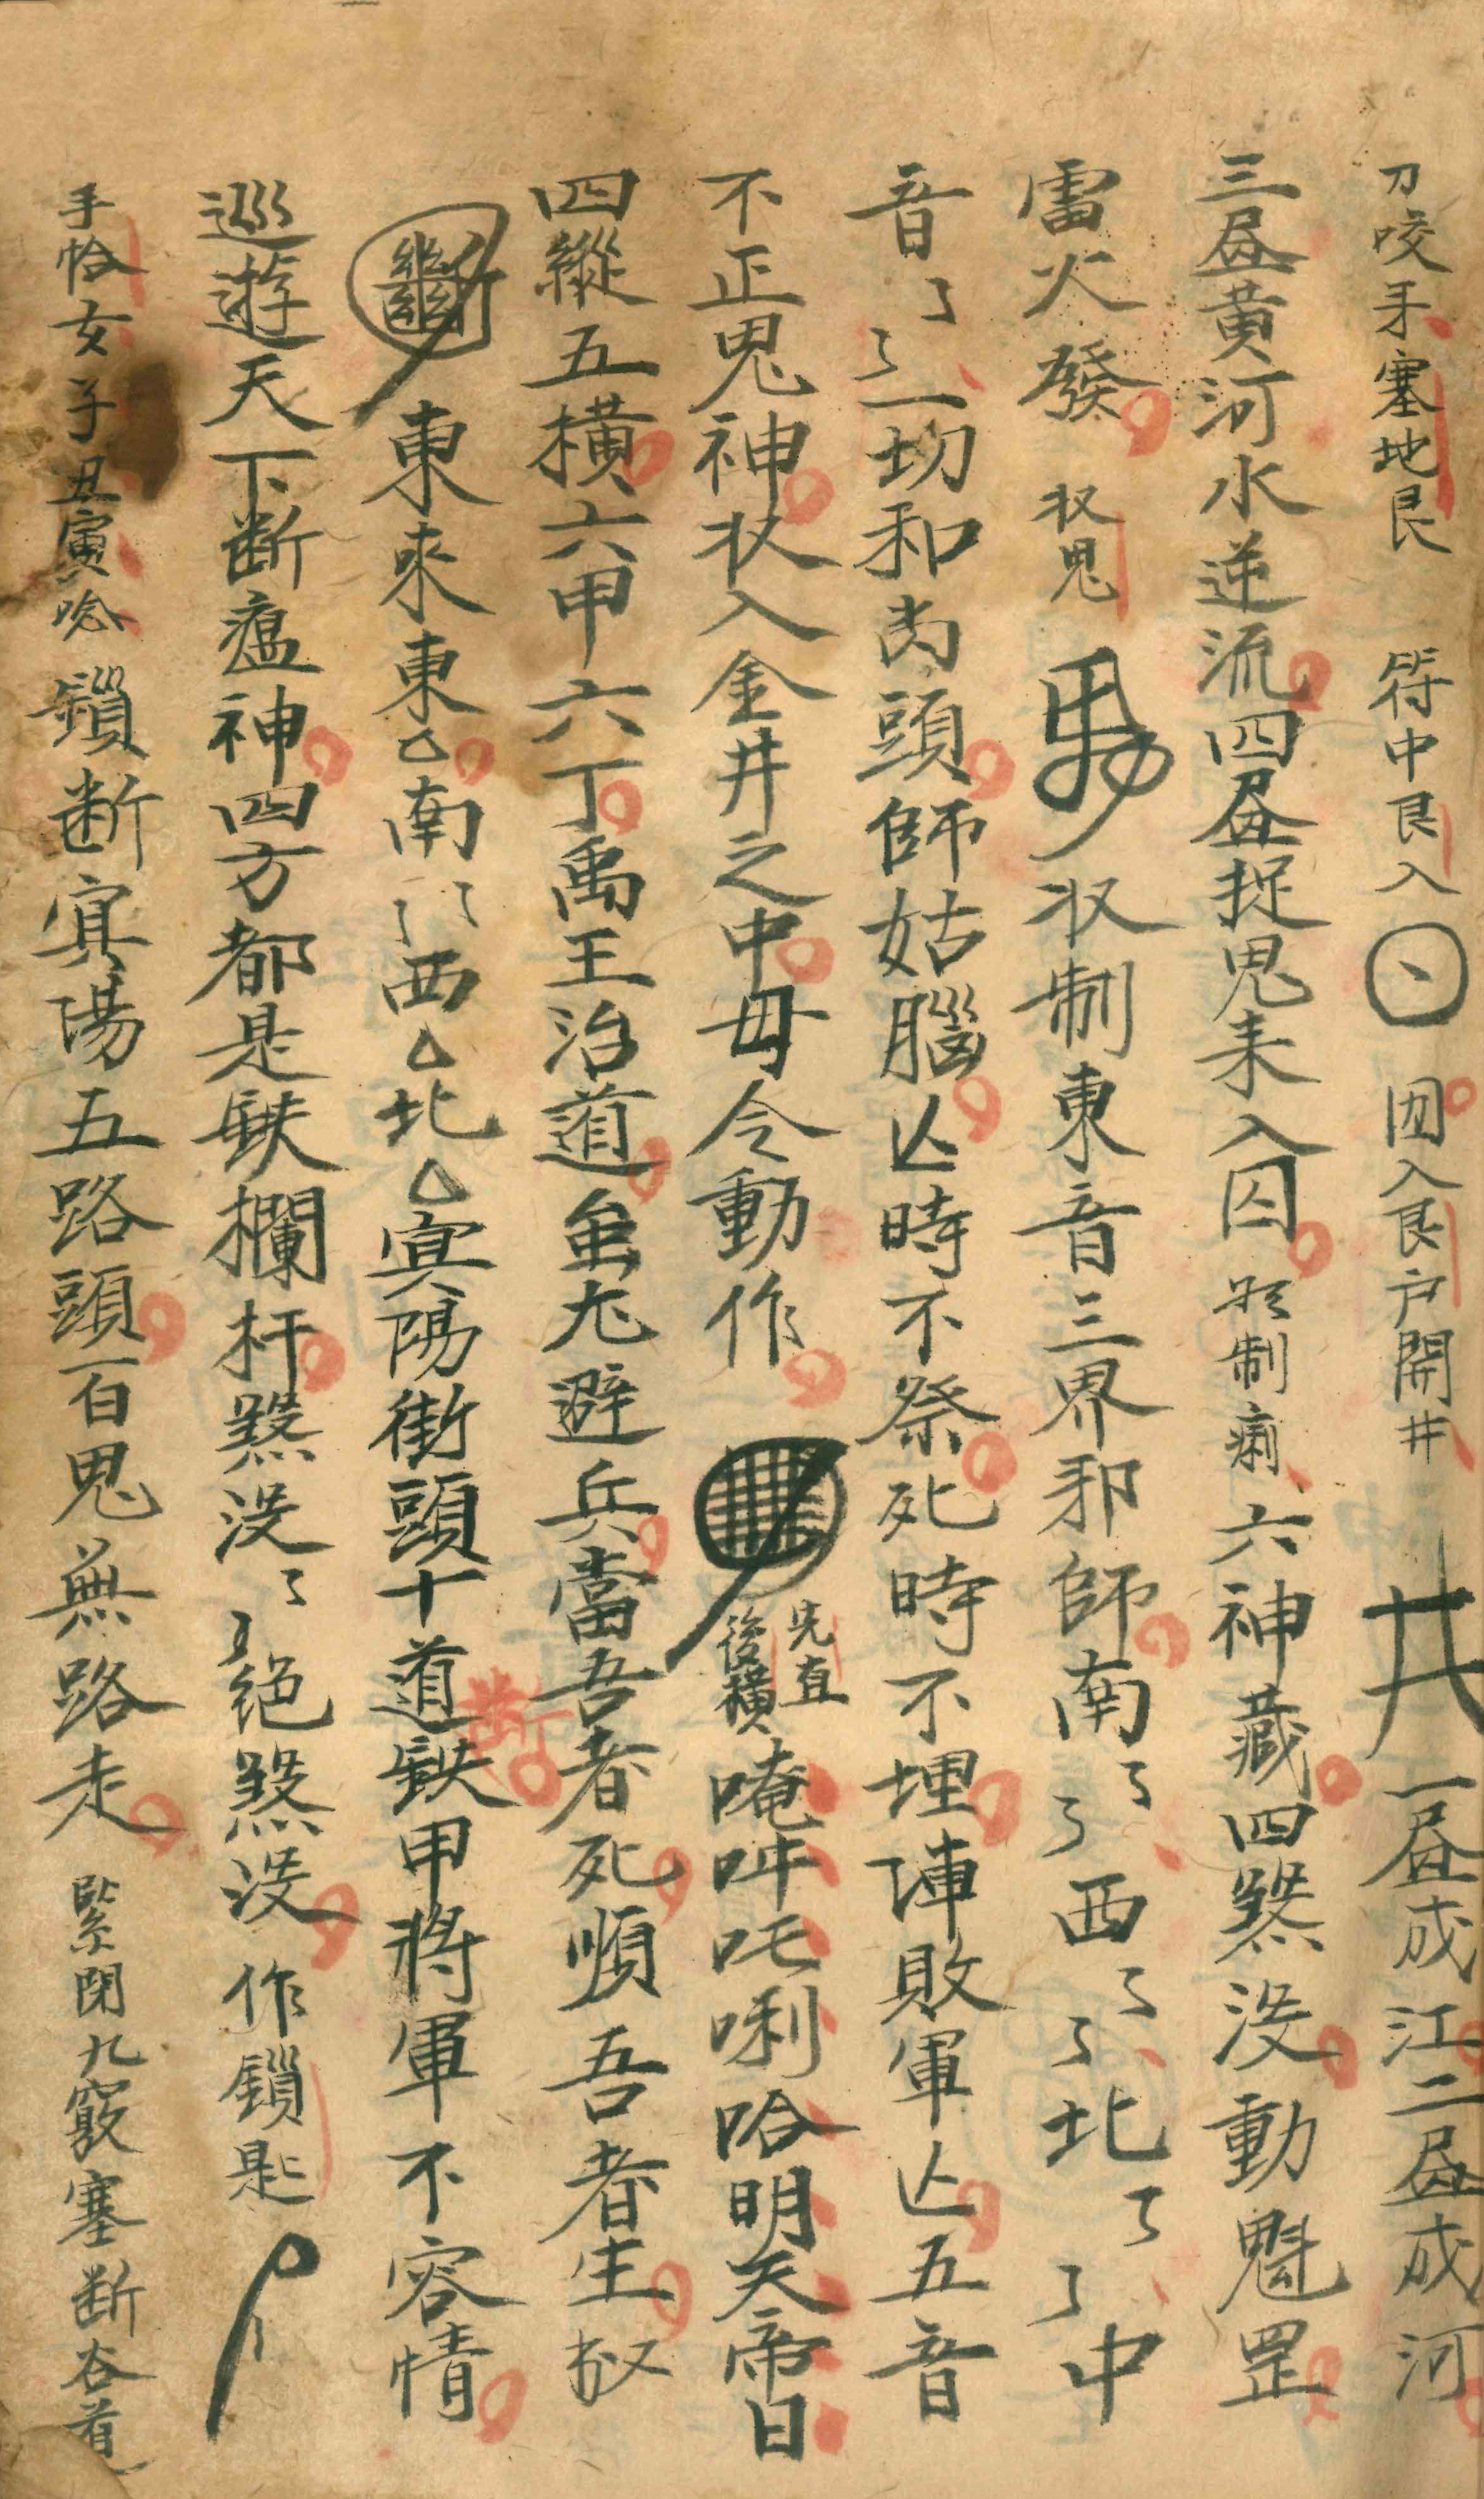 刀咬手塞地艮 符中艮入 囚入艮户開井 一昼成江二昼成河
三昼黄河水逆流四昼捉鬼来入囚 制痢六神藏四煞没動魁罡
雷火發 收鬼 收制東音三界邪師南々々西々々北々々中
音々々一切和尚頭師姑腦亡時不祭死時不埋陣敗軍亡五音
不正鬼神收入金井之中毋令動作 先直後横 唵吽吒唎哈明天帝日
四縱五横六甲六丁禹王治道蚩尤避兵當吾者死順吾者生敇
斷 東來東 南々々西 北 寅陽街頭十道鈇甲將軍不容情
巡遊天下断瘟神四方都是鈇欄杆煞没々々絕煞没 作鎖匙
手恰女子子丑寅唸 鎖断寅陽五路頭百鬼無路走 緊閉九竅塞断谷道